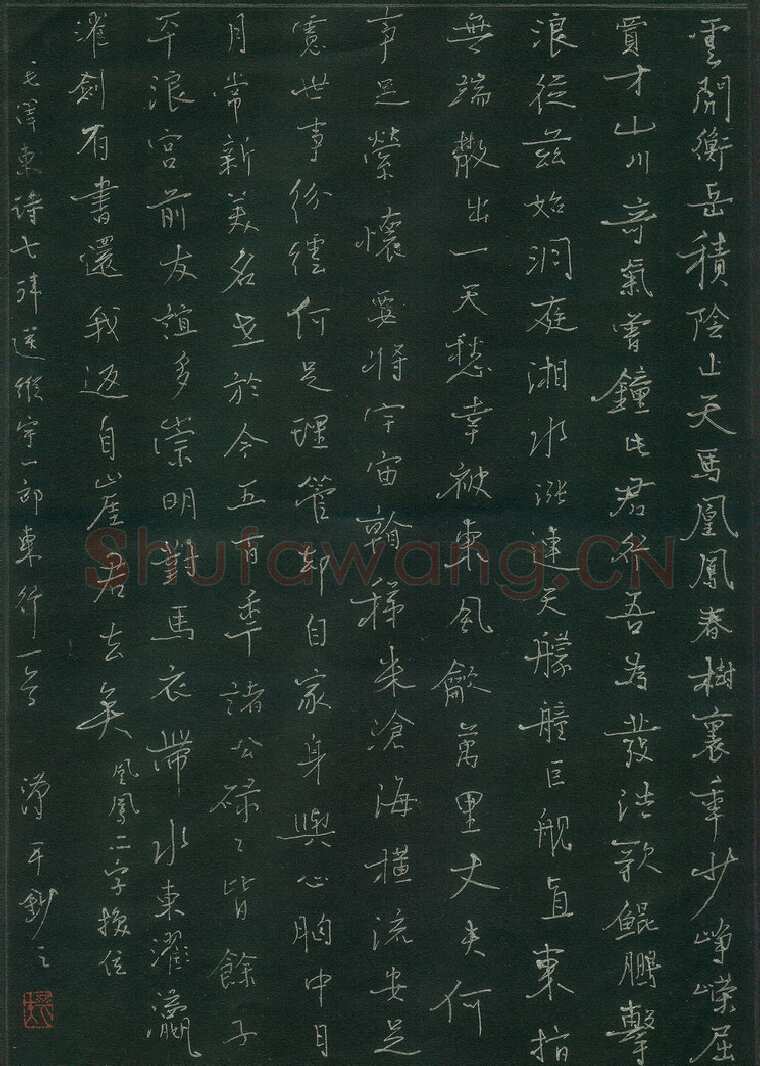 雲開衡岳積陰止天馬凰鳳春樹裏年少崢嶸屈
賈才山川奇氣曾鐘此君行吾為發浩歌鯤鵬擊
浪從茲始洞庭湘水漲連天艨艟巨舰直東指
無端散出一天愁幸被東風歙萬里丈夫何
事足縈懷要將宇宙看稊米滄海橫流安足
慮世事纷纭何足理管却自家身與心胸中日
月常新美名世於今五百年諸公碌々皆餘子
平浪宮前友誼多崇明對馬衣帶水東瀛濯
濯劍有書還我返自崖君去矣
凰鳳二字換位
毛澤東詩七律送縱宇一郎東行一首
鈔之
Shufawang.CN